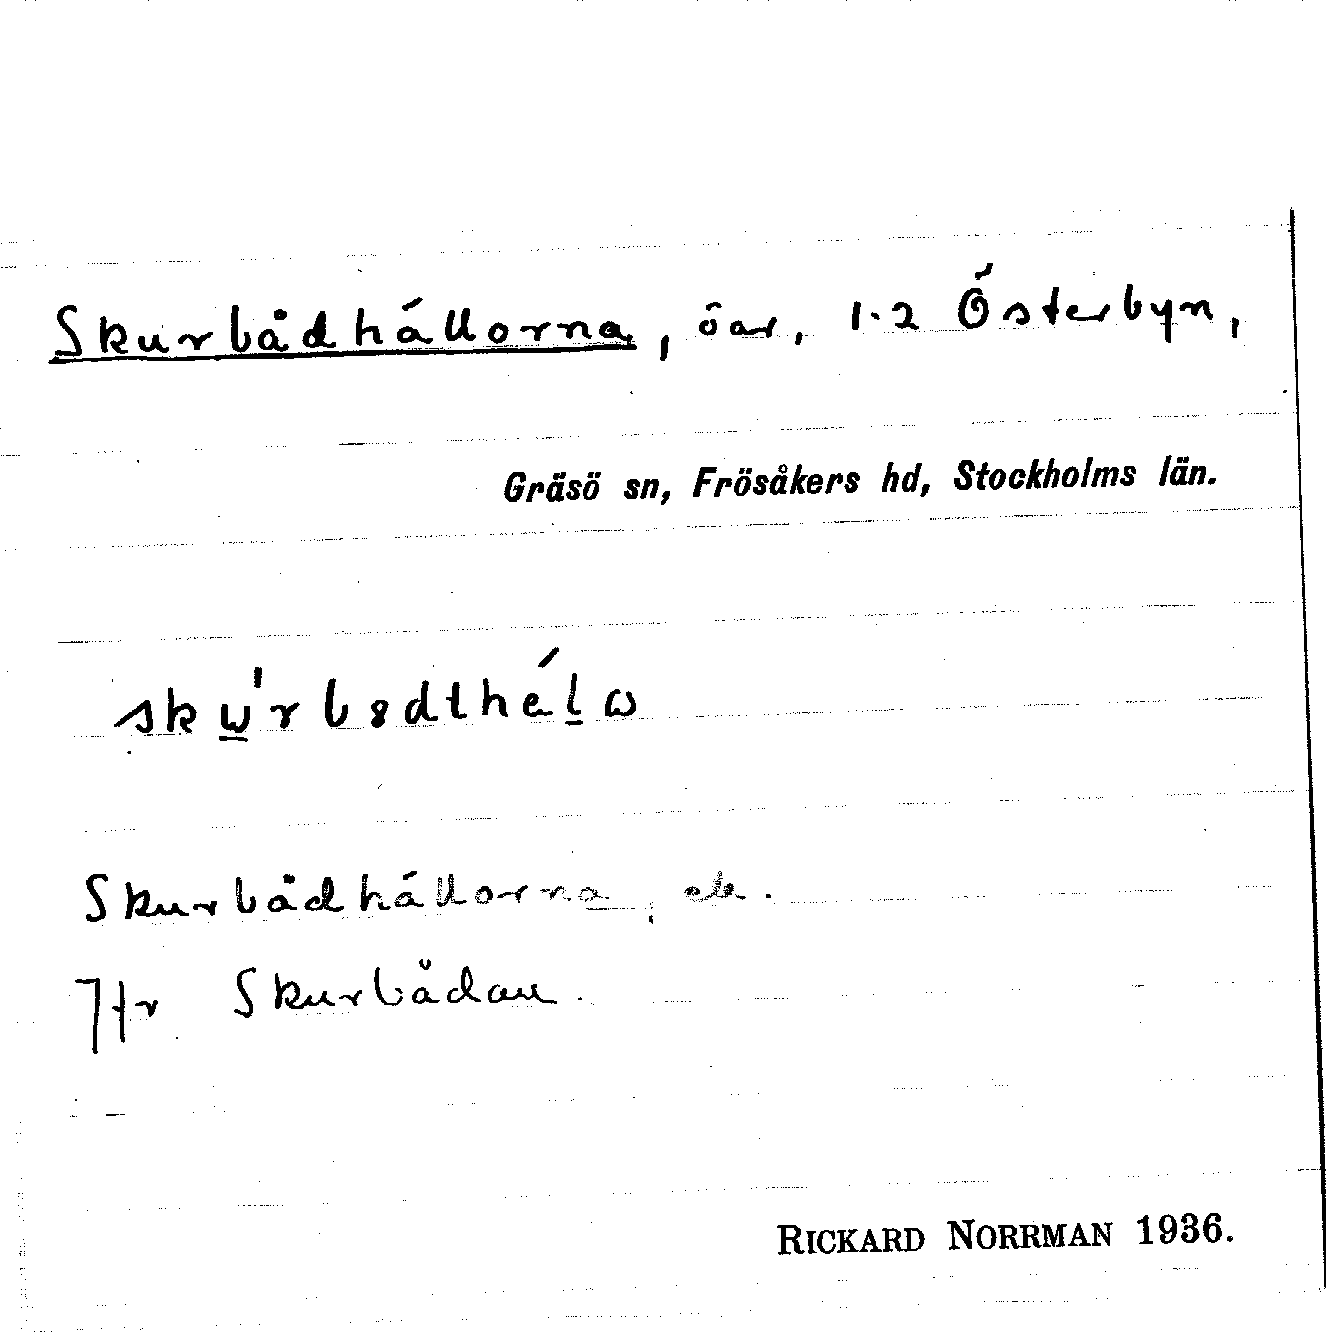 Skurbådhällorna, öar, 1-2 Österbyn,
Gräsö sn, Frösåkers hd, Stockholms län.
Skurbådhällorna, ek.
Jfr Skurbådan.
RICKARD NORRMAN 1936.